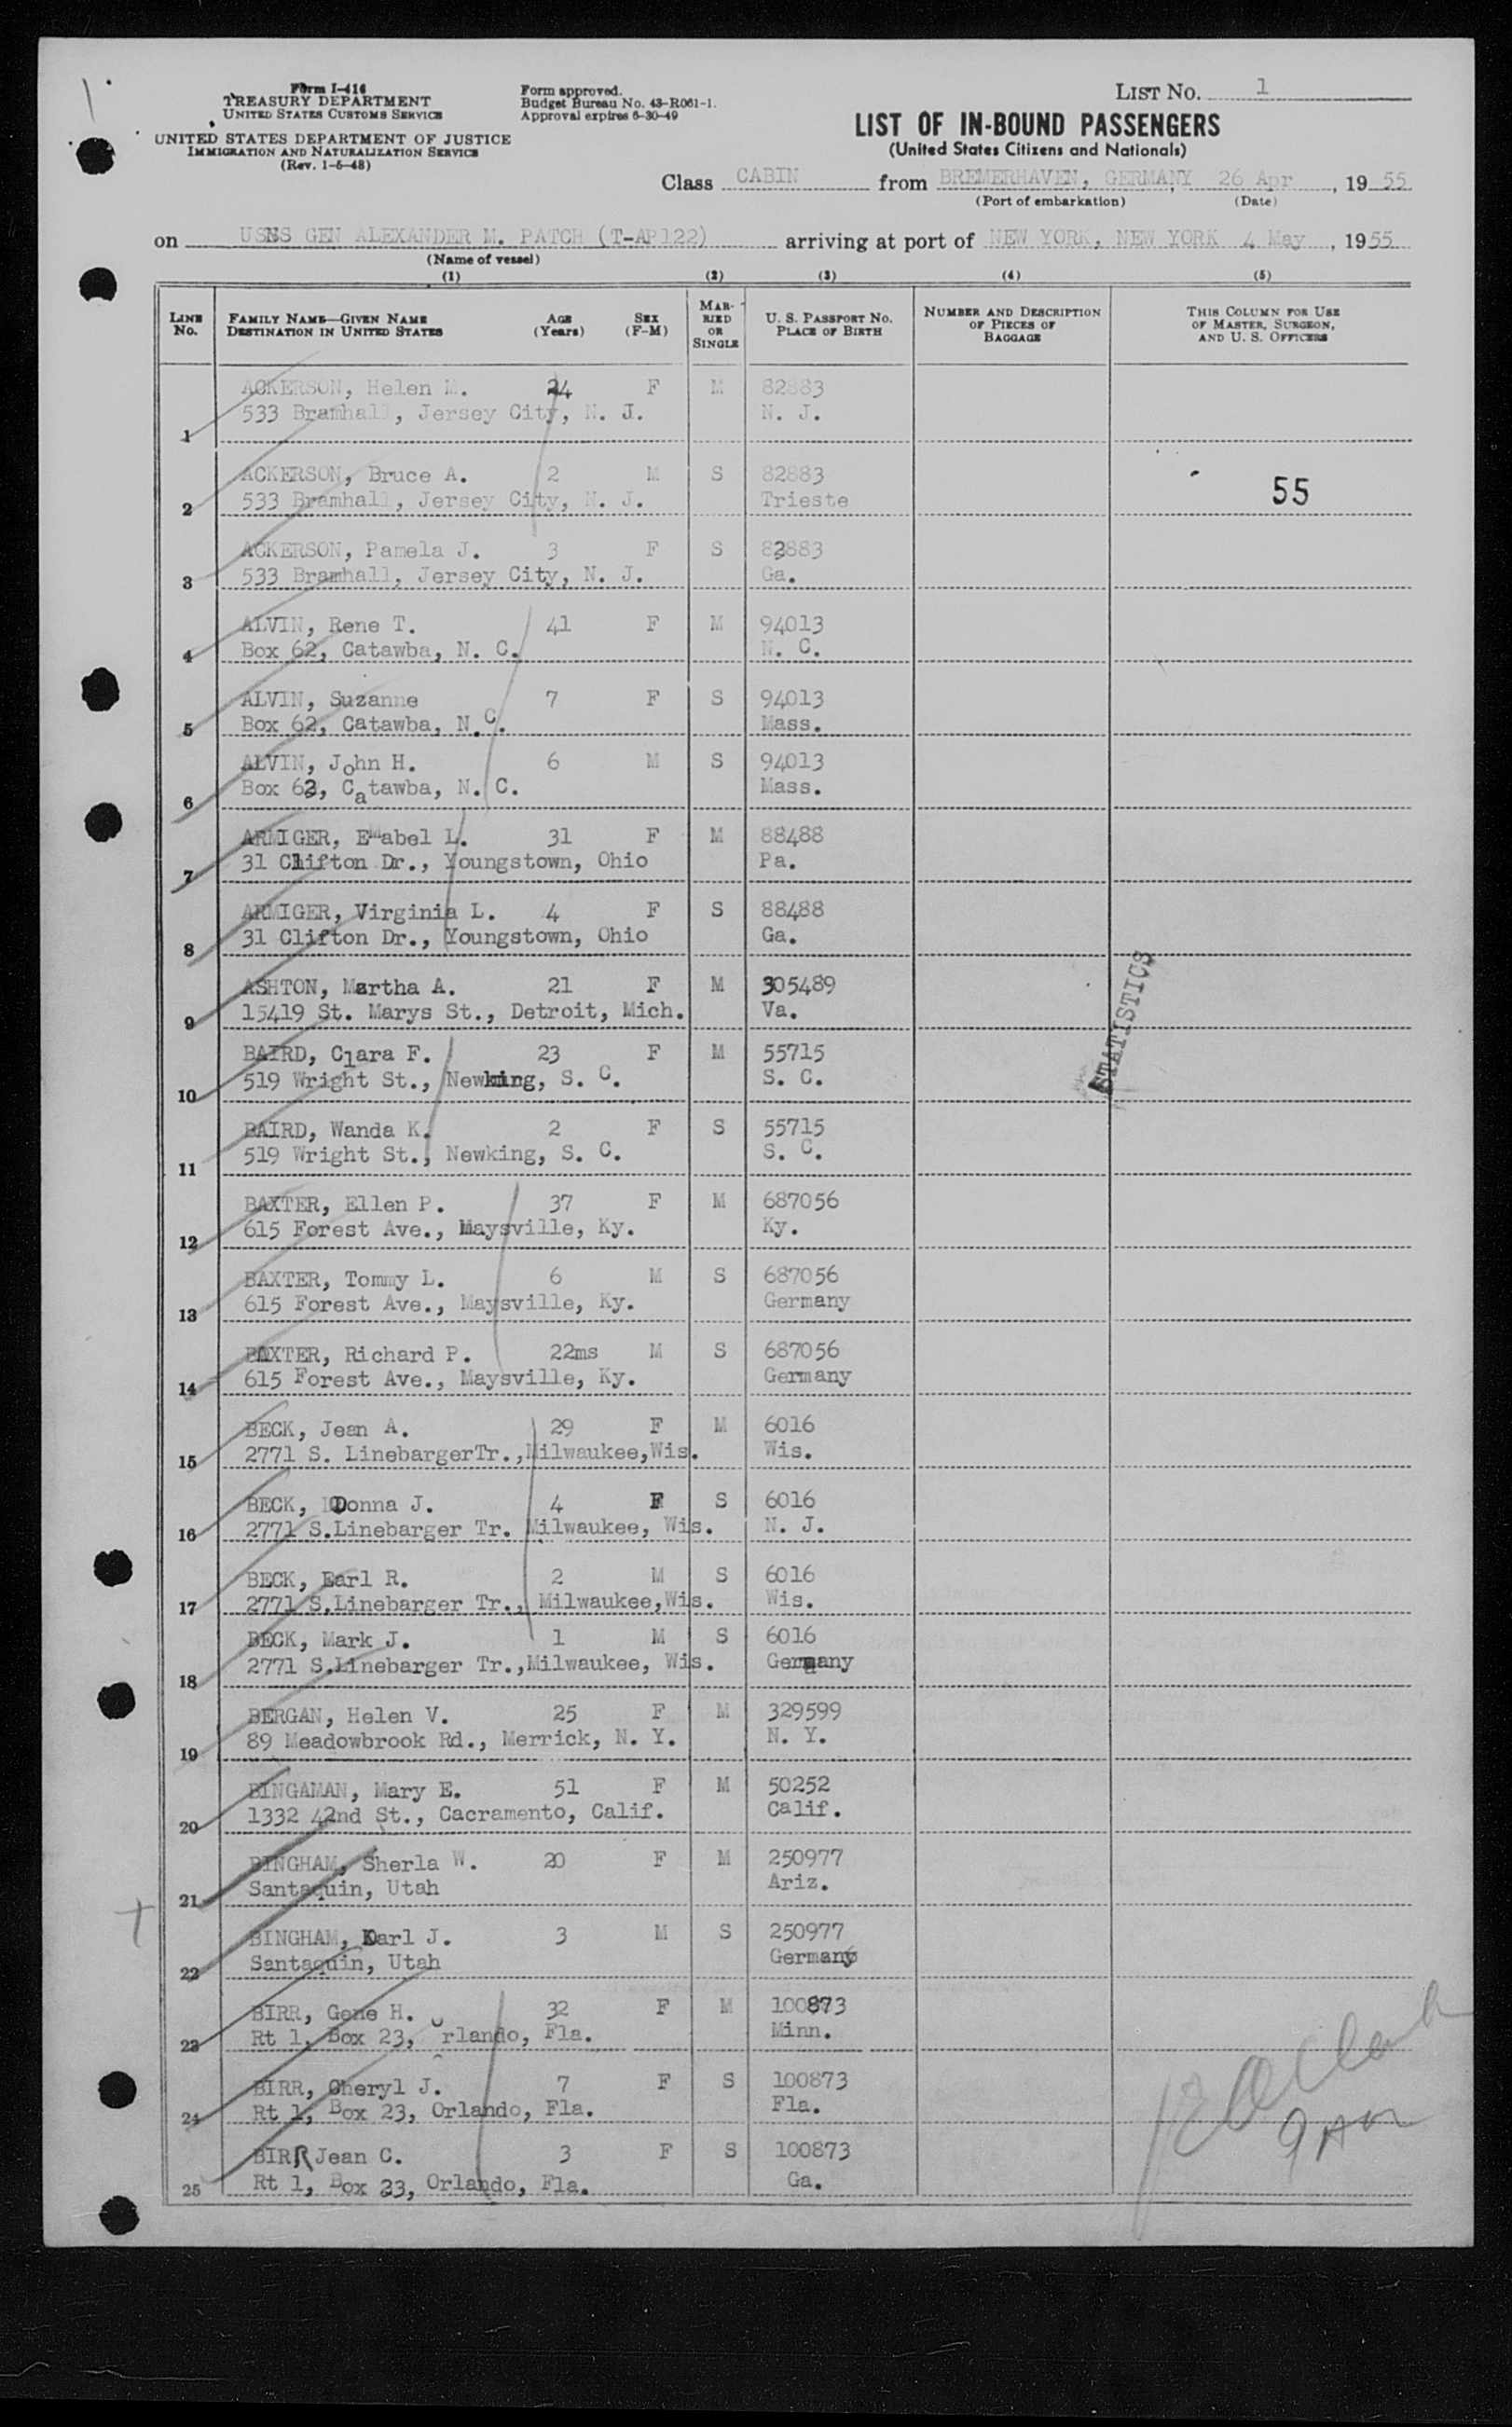 Form I-416
TREASURY DEPARTMENT
UNITED STATES CUSTOMS SERVICE
UNITED STATES DEPARTMENT OF JUSTICE
IMMIGRATION AND NATURALIZATION SERVICE
(Rev. 1-5-48)
Form approved.
Budget Bureau No. 43-R061-1.
Approval expires 6-30-49
LIST NO. 1
LIST OF IN-BOUND PASSENGERS
(United States Citizens and Nationals)
Class CABIN from BREMERHAVEN, GERMANY, 26 Apr, 1955
(Port of embarkation) (Date)
on USNS GEN ALEXANDER M. PATCH (T-AP122) arriving at port of NEW YORK, NEW YORK 4 May, 1955
(Name of vessel)
(1) (2) (3) (4) (5)
LINE NO. FAMILY NAME—GIVEN NAME DESTINATION IN UNITED STATES AGE (Years) SEX (F-M) MARRIED OR SINGLE U. S. PASSPORT NO. PLACE OF BIRTH NUMBER AND DESCRIPTION OF PIECES OF BAGGAGE THIS COLUMN FOR USE OF MASTER, SURGEON, AND U. S. OFFICERS
ACKERSON, Helen M. 24 F M 82883
1 533 Bramhall, Jersey City, N. J. N. J.
ACKERSON, Bruce A. 2 M S 82883
2 533 Bramhall, Jersey City, N. J. Trieste 55
ACKERSON, Pamela J. 3 F S 82883
3 533 Bramhall, Jersey City, N. J. Ga.
ALVIN, Rene T. 41 F M 94013
4 Box 62, Catawba, N. C. N. C.
ALVIN, Suzanne 7 F S 94013
5 Box 62, Catawba, N. C. Mass.
ALVIN, John H. 6 M S 94013
6 Box 62, Catawba, N. C. Mass.
ARMIGER, EMabel L. 31 F M 88488
7 31 Clifton Dr., Youngstown, Ohio Pa.
ARMIGER, Virginia L. 4 F S 88488
8 31 Clifton Dr., Youngstown, Ohio Ga.
ASHTON, Martha A. 21 F M 305489
9 15419 St. Marys St., Detroit, Mich. Va.
STATISTICS
BAIRD, Clara F. 23 F M 55715
10 519 Wright St., Newking, S. C. S. C.
BAIRD, Wanda K. 2 F S 55715
11 519 Wright St., Newking, S. C. S. C.
BAXTER, Ellen P. 37 F M 687056
12 615 Forest Ave., Maysville, Ky. Ky.
BAXTER, Tommy L. 6 M S 687056
13 615 Forest Ave., Maysville, Ky. Germany
BAXTER, Richard P. 22ms M S 687056
14 615 Forest Ave., Maysville, Ky. Germany
BECK, Jean A. 29 F M 6016
15 2771 S. LinebargerTr.,Milwaukee,Wis. Wis.
BECK, Donna J. 4 F S 6016
16 2771 S.Linebarger Tr. Milwaukee, Wis. N. J.
BECK, Earl R. 2 M S 6016
17 2771 S.Linebarger Tr., Milwaukee,Wis. Wis.
BECK, Mark J. 1 M S 6016
18 2771 S.Linebarger Tr.,Milwaukee, Wis. Germany
BERGAN, Helen V. 25 F M 329599
19 89 Meadowbrook Rd., Merrick, N. Y. N. Y.
BINGAMAN, Mary E. 51 F M 50252
20 1332 42nd St., Cacramento, Calif. Calif.
BINGHAM, Sherla W. 20 F M 250977
21 Santaquin, Utah Ariz.
BINGHAM, Karl J. 3 M S 250977
22 Santaquin, Utah Germany
BIRR, Gene H. 32 F M 100873
23 Rt 1, Box 23, Orlando, Fla. Minn.
BIRR, Cheryl J. 7 F S 100873
24 Rt 1, Box 23, Orlando, Fla. Fla.
BIRR Jean C. 3 F S 100873
25 Rt 1, Box 23, Orlando, Fla. Ga.